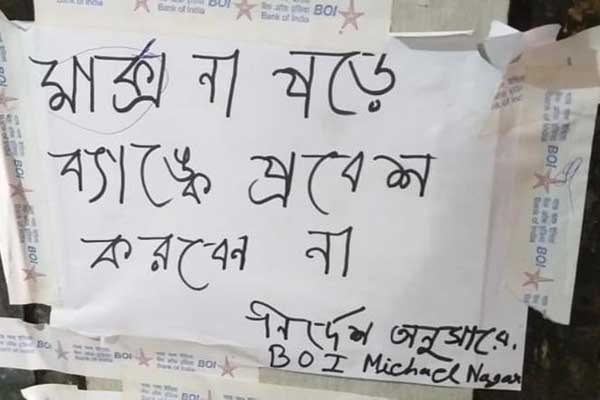 BOI
Bank of India
BOI
Bank of India
BOI
মার্ক্স না পড়ে
ব্যাঙ্কে প্রবেশ
করবেন না
নির্দেশ অনুসারে.
BOI Michael Nagar
BOI
Bank of India
BOI
Bank of India
BOI